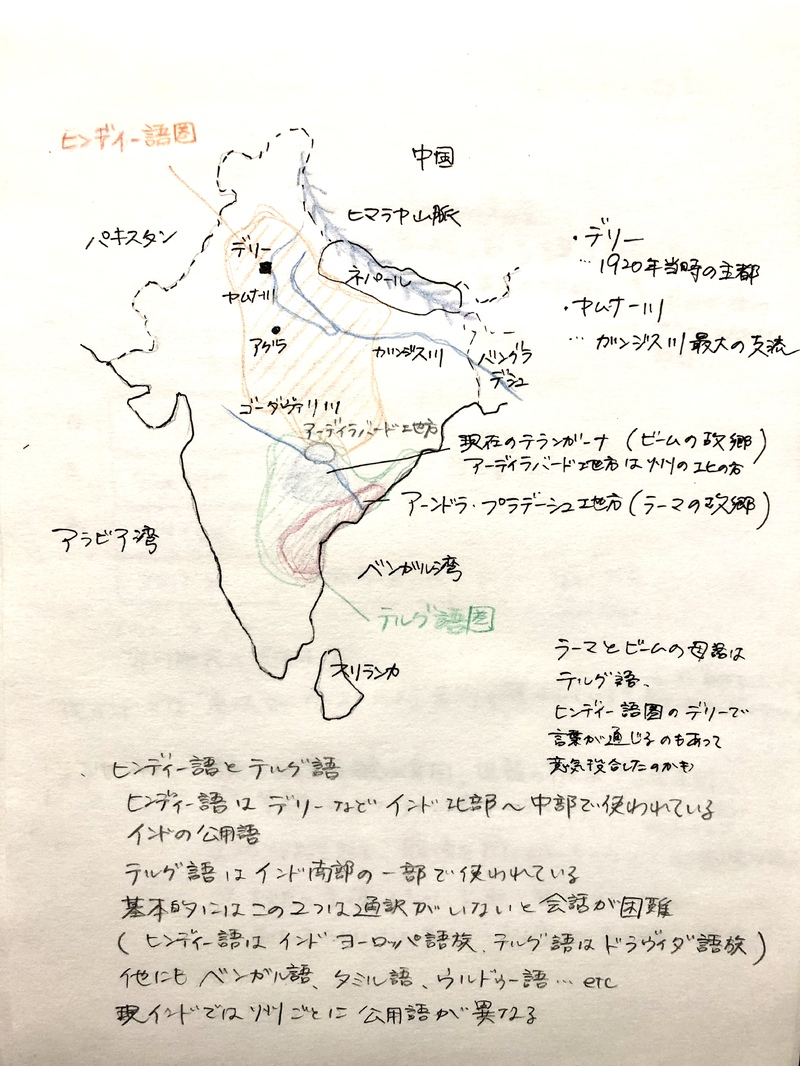 ヒンディー語圏
中国
パキスタン
ヒマラヤ山脈
デリー
ネパール
・デリー
… 1920年当時の主都
ヤムナー川
・ヤムナー川
… ガンジス川最大の支流
アグラ
ガンジス川
バングラ
デシュ
ゴーダヴァリ川
アーディラバード地方
現在のテランガーナ (ビームの故郷)
アーディラバード地方は州の北の方
アーンドラ・プラデーシュ地方 (ラーマの故郷)
アラビア湾
ベンガル湾
テルグ語圏
スリランカ
ラーマとビームの母語は
テルグ語、
ヒンディー語圏のデリーで
言葉が通じるのもあって
意気投合したのかも
・ヒンディー語とテルグ語
ヒンディー語はデリーなどインド北部〜中部で使われている
インドの公用語
テルグ語はインド南部の一部で使われている
基本的にはこの2つは通訳がいないと会話が困難
(ヒンディー語はインドヨーロッパ語族、テルグ語はドラヴィダ語族)
他にもベンガル語、タミル語、ウルドゥー語…etc
現インドでは州ごとに公用語が異なる